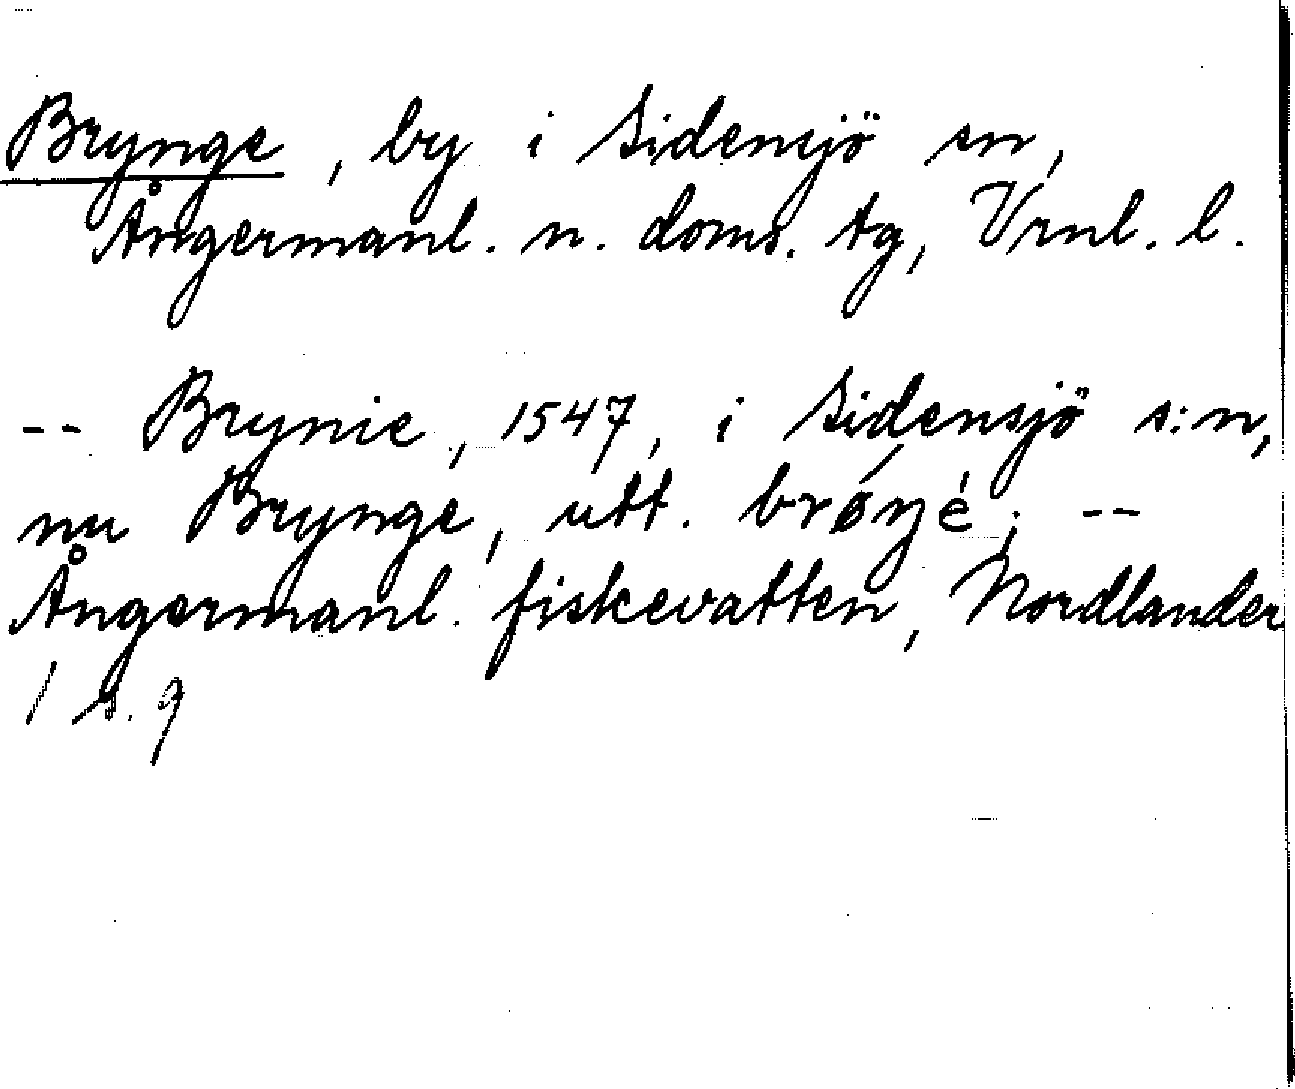 Brynge, by i Sidensjö sn,
Ångermanl. n. doms. tg, Vrnl. l.
-- Brynie, 1547, i Sidensjö s:n,
nu Brynge, utt. brǿŋé; --
Ångermanl. fiskevatten, Nordlander
1 s. 9